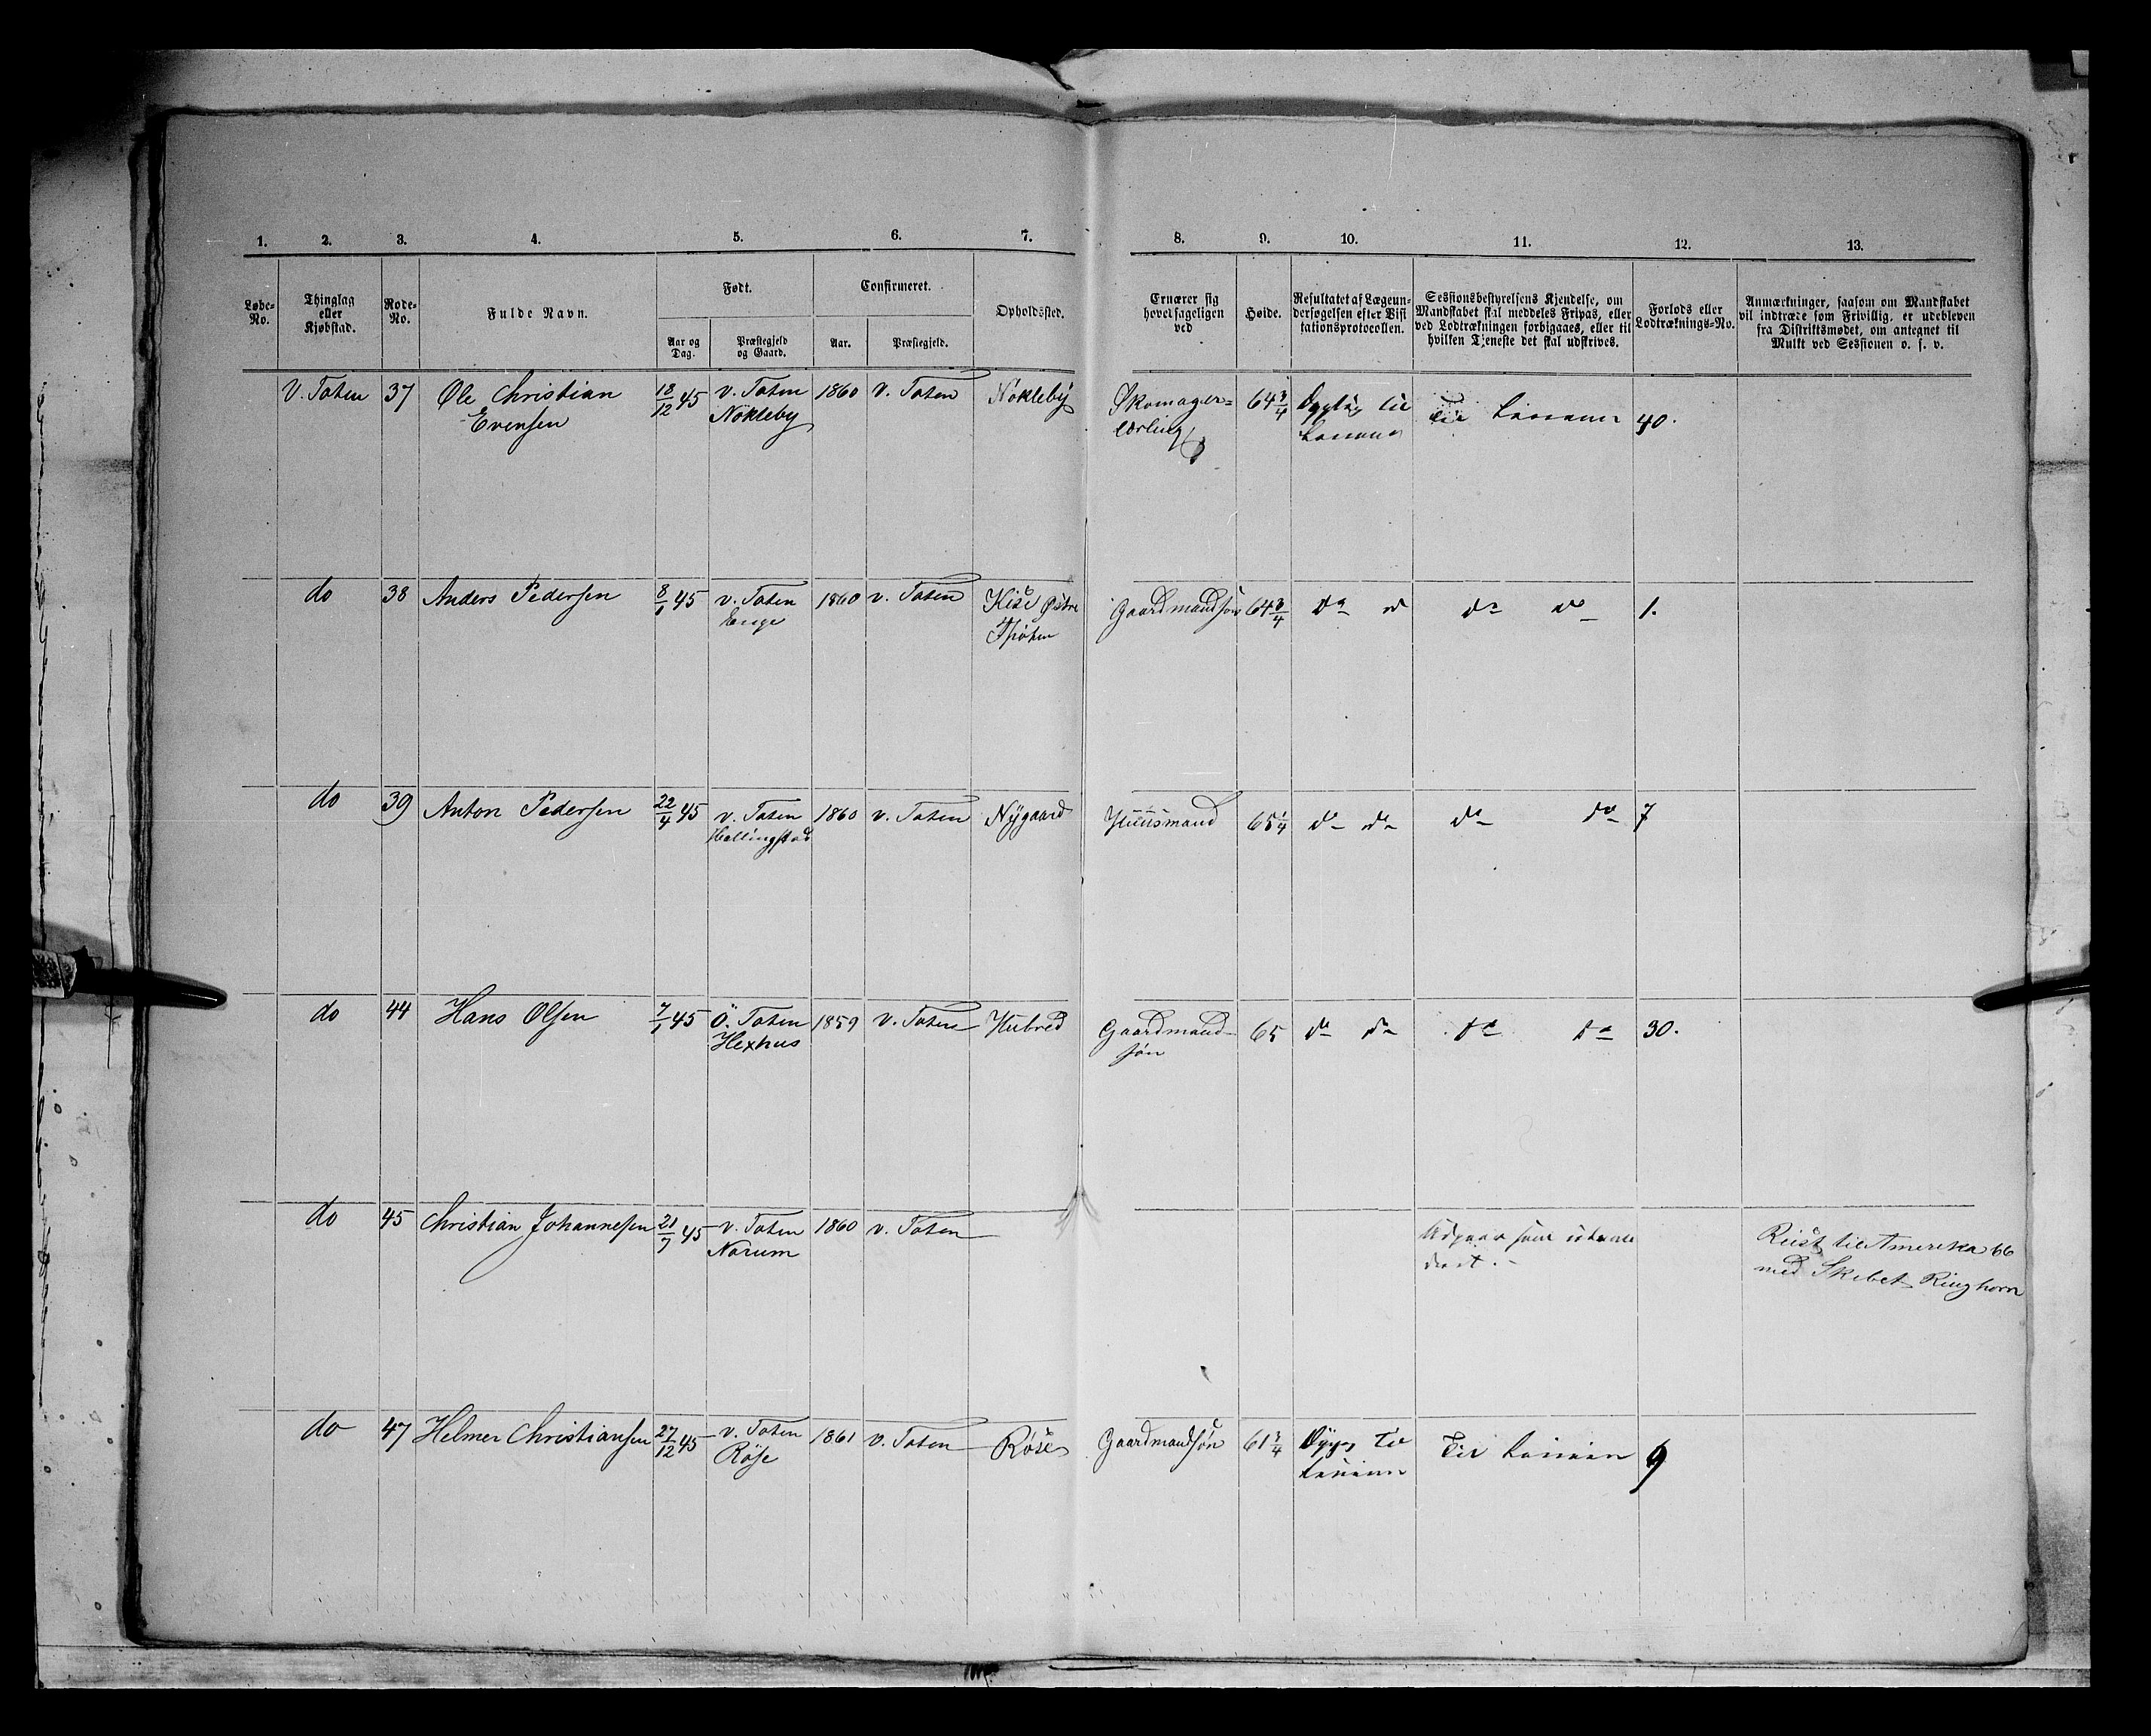 1. 2. 3. 4. 5. 6. 7. 8. 9. 10. 11. 12. 13.
Løbe-No. Thinglag eller Kjøbstad. Rode-No. Fulde Navn. Født. Aar og Dag. Præstegjeld og Gaard. Confirmeret. Aar. Præstegjeld. Opholdssted. Ernærer sig hovedsageligen ved Høide. Resultatet af Lægeundersøgelsen efter Visitationsprotocollen. Sessionsbestyrelsens Kjendelse, om Mandskabet skal meddeles Fripas, eller ved Lodtrækningen forbigaaes, eller til hvilken Tjeneste det skal udskrives. Forlods eller Lodtræknings-No. Anmærkninger, saasom om Mandskabet vil indtræde som Frivillig, er udebleven fra Distriktsmødet, om antegnet til Mulkt ved Sessionen o. s. v.
V. Toten 37 Ole Christian 18/12 45 V. Toten 1860 V. Toten Nökleby Skomager= 64 3/4 Dygtig til Til Linien 40.
Evensen Nökleby lærling Linien
do 38 Anders Pedersen 8/1 45 V. Toten 1860 V. Toten Kise Østre Gaardmandsøn 64 3/4 do do do do 1.
Enge
do 39 Anton Pedersen 22/4 45 V. Toten 1860 V. Toten Nÿgaard Huusmand 65 1/4 do do do do 7
Hellingstad
do 44 Hans Olsen 7/1 45 Ö. Toten 1859 V. Toten Gaardmand- 65 do do do do 30.
Hexhus søn
do 45 Christian Johannesen 21/7 45 V. Toten 1860 V. Toten Udgaar som udvan- Reist til Amerika 66
Narum dret. med Skibet Ringhorn
do 47 Helmer Christiansen 27/12 45 V. Toten 1861 V. Toten Röse Gaardmandsøn 61 3/4 Dygtig til Til Linien 9
Röse Linien